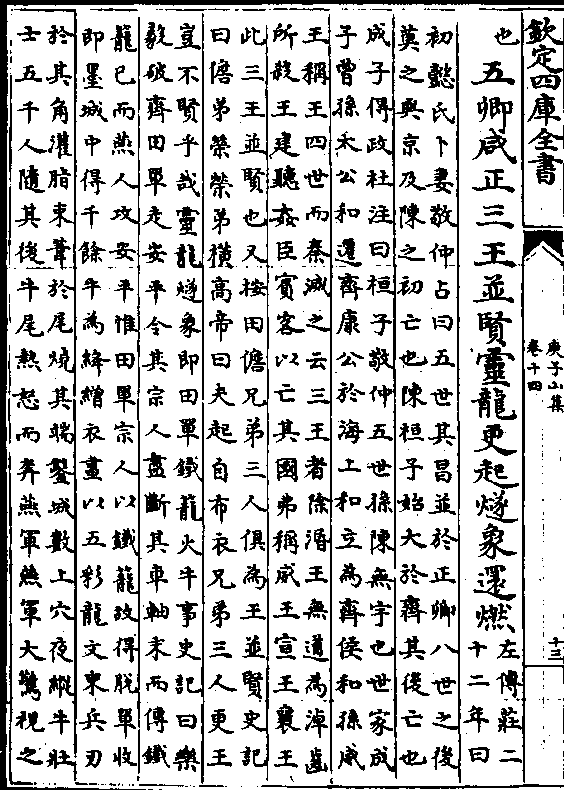 欽定四庫全書
庾子山集
卷十四
十三
也
五卿咸正三王並賢靈龍更起燧象還燃
左傳莊二
十二年曰
初懿氏卜妻敬仲占曰五世其昌並於正卿八世之後
莫之與京及陳之初亡也陳桓子始大於齊其後亡也
成子得政杜注曰桓子敬仲五世孫陳無宇也世家成
子曾孫太公和遷齊康公於海上和立為齊侯和孫威
王稱王四世而秦滅之云三王者除湣王無道為淖齒
所殺王建聽姦臣賓客以亡其國弗稱威王宣王襄王
此三王並賢也又按田儋兄弟三人俱為王並賢史記
曰儋弟榮榮弟橫高帝曰夫起自布衣兄弟三人更王
豈不賢乎哉靈龍燧象即田單鐵籠火牛事史記曰樂
毅破齊田單走安平令其宗人盡斷其車軸末而傅鐵
龍已而燕人攻安平惟田單宗人以鐵籠故得脫單收
即墨城中得千餘牛為絳繒衣畫以五彩龍文束兵刃
於其角灌脂束葦於尾燒其端鑿城數上穴夜縱牛壯
士五千人隨其後牛尾熱怒而奔燕軍燕軍大驚視之